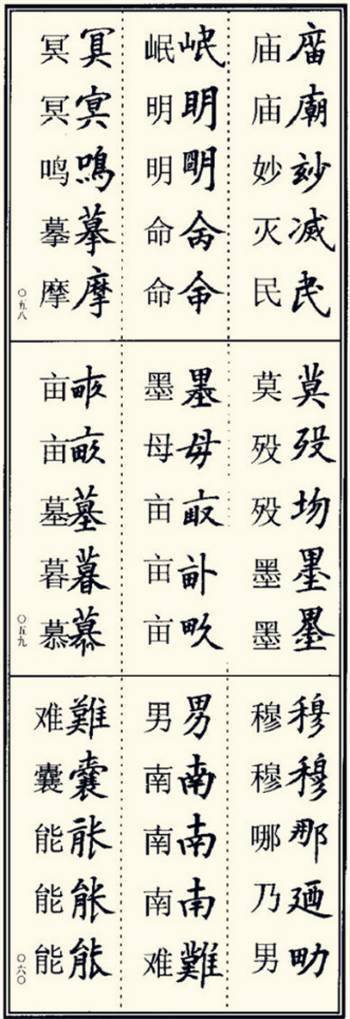 庿廟玅滅民
庙庙妙灭民
岷眀明命命
岷明明命命
冥冥鳴摹摩
冥冥鸣摹摩
〇五八
莫歿墨墨
莫殁殁墨墨
墨母畝
墨母亩亩亩
畝墓暮慕
亩亩墓暮慕
〇五九
穆穆那廼男
穆穆哪乃男
男南南南難
男南南南难
難囊能能能
难囊能能能
〇六〇